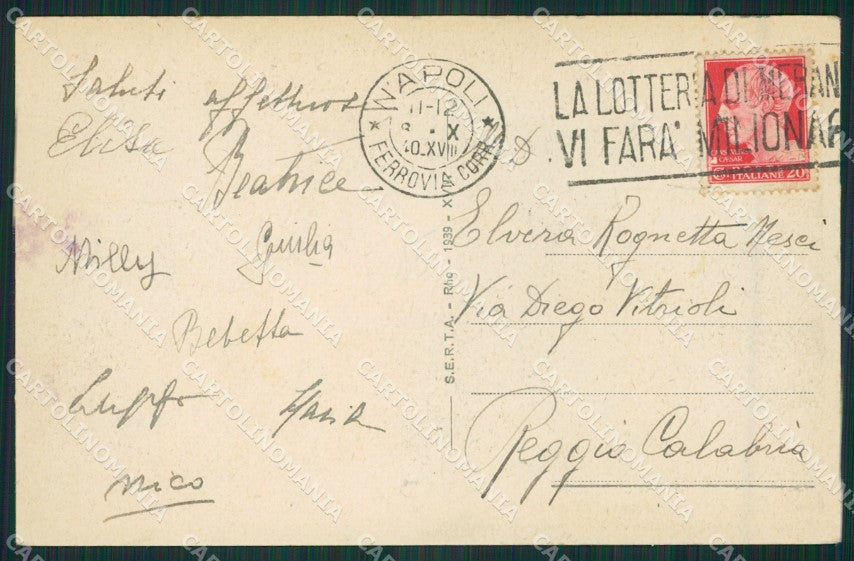 Saluti affettuosi
Elisa
Beatrice
Milly
Giulia
Bebetta
Maria
Nico
NAPOLI
11-12
8 . X
40.XVIII
FERROVIA CORR.
LA LOTTERIA DI MERAN
VI FARA' MILIONA
CAESAR
ITALIANE 20
S.E.R.T.A. - Rño - 1939 - XVII
Elvera Rognetta Nesci
Via Diego Vitrioli
Reggio Calabria
CARTOLINOMANIA